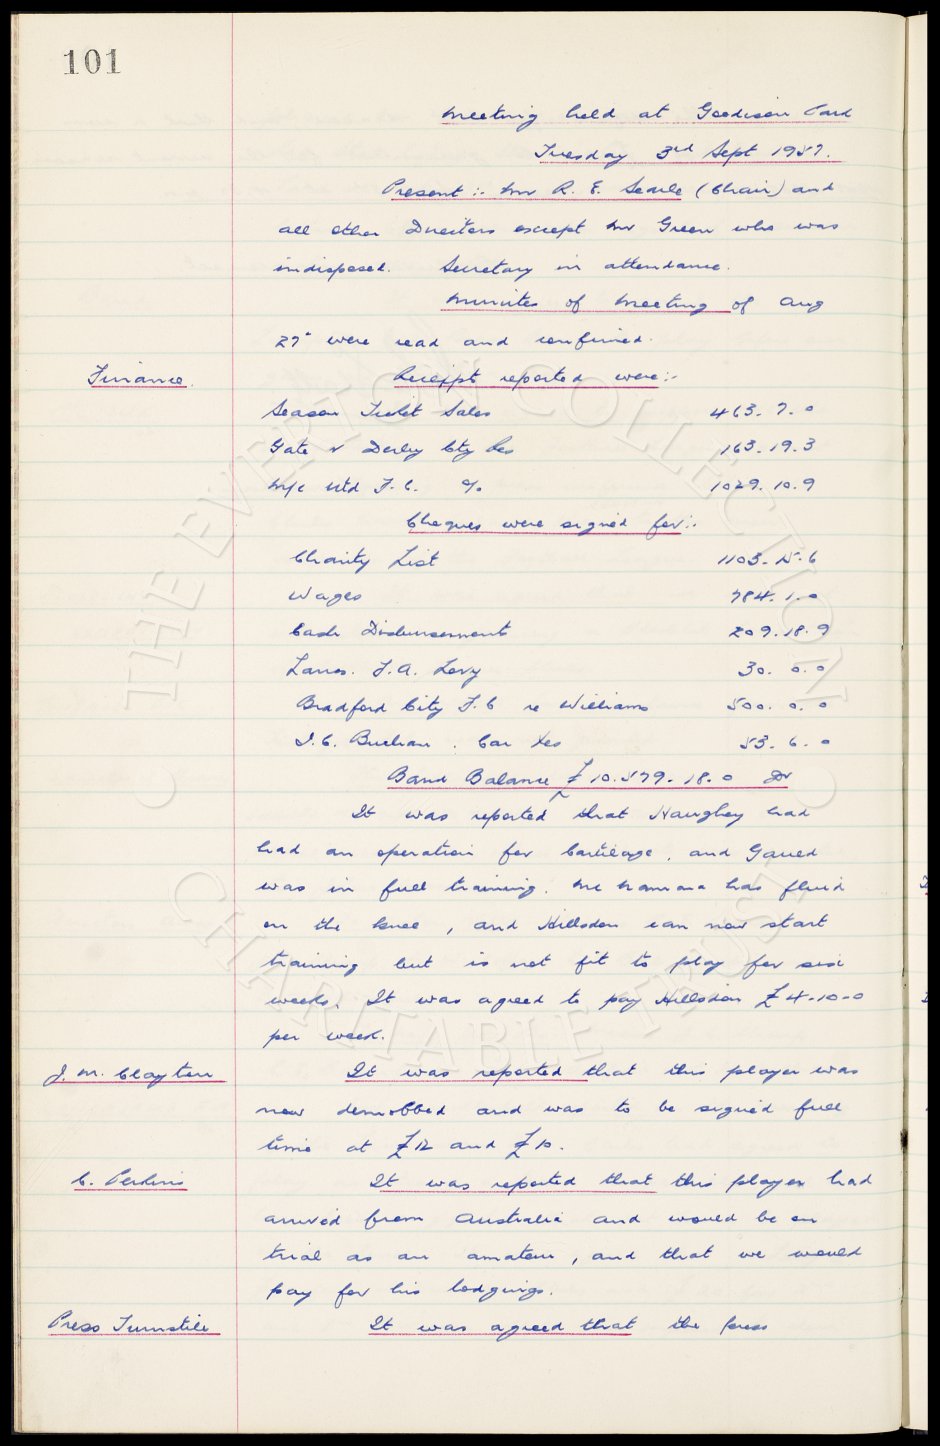 101
Meeting held at Goodison Park
Tuesday 3rd Sept 1957.
Present :- Mr R. E. Searle (Chair) and
all other Directors except Mr Green who was
indisposed. Secretary in attendance.
Minutes of Meeting of Aug
27" were read and confirmed.
Finance. Receipts reported were:-
Season Ticket Sales 463. 7. 0
Gate v Derby Cty Res 163. 19. 3
M/c Utd F.C. % 1029. 10. 9
Cheques were signed for:-
Charity List 1103. 15. 6
Wages 784. 1. 0
Cash Disbursements 209. 18. 9
Lancs. F.A. Levy 30. 0. 0
Bradford City F.C re Williams 500. 0. 0
I.C. Buchan. Car 53. 6. 0
Bank Balance £10.579. 18. 0 Dr
It was reported that Haughey had
had an operation for Cartilage, and Gauld
was in full training. McNamara has fluid
on the knee, and Hillsdon can now start
training but is not fit to play for six
weeks. It was agreed to pay Hillsdon £4-10-0
per week.
J. M. Clayton It was reported that this player was
now demobbed and was to be signed full
time at £12 and £10.
C. Perkins It was reported that this player had
arrived from Australia and would be on
trial as an amateur, and that we would
pay for his lodgings.
Press Turnstile It was agreed that the press
THE EVERTON COLLECTION
CHARITABLE TRUST